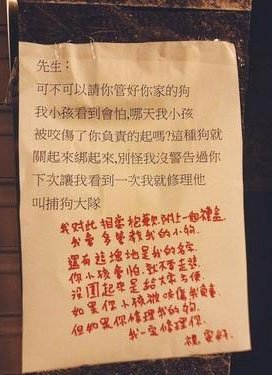 先生：
可不可以請你管好你家的狗
我小孩看到會怕，哪天我小孩
被咬傷了你負責的起嗎？這種狗就
關起來綁起來，別怪我沒警告過你
下次讓我看到一次我就修理他
叫捕狗大隊
我對此相當抱歉，附上一個禮盒
我會多管教我的小狗
還有這塊地是我的名字
你小孩會怕，就不要走
沒圍起來是給大家方便
如果你小孩被咬傷我負責
但如果你修理我的狗
我一定修理你
祝 安好